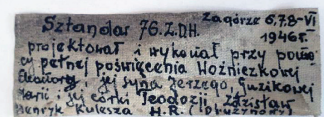 Sztandar 76.Z.DH. Zagórze 6.7.8-VI
1946r.
projektował i wykonał przy pomo
cy pełnej poświęcenia Hoźniezkowej
jej syna Jerzego Guzikowej
Marii i jej córki Teodozji Zdzisław
Henryk Kulesza H.R.